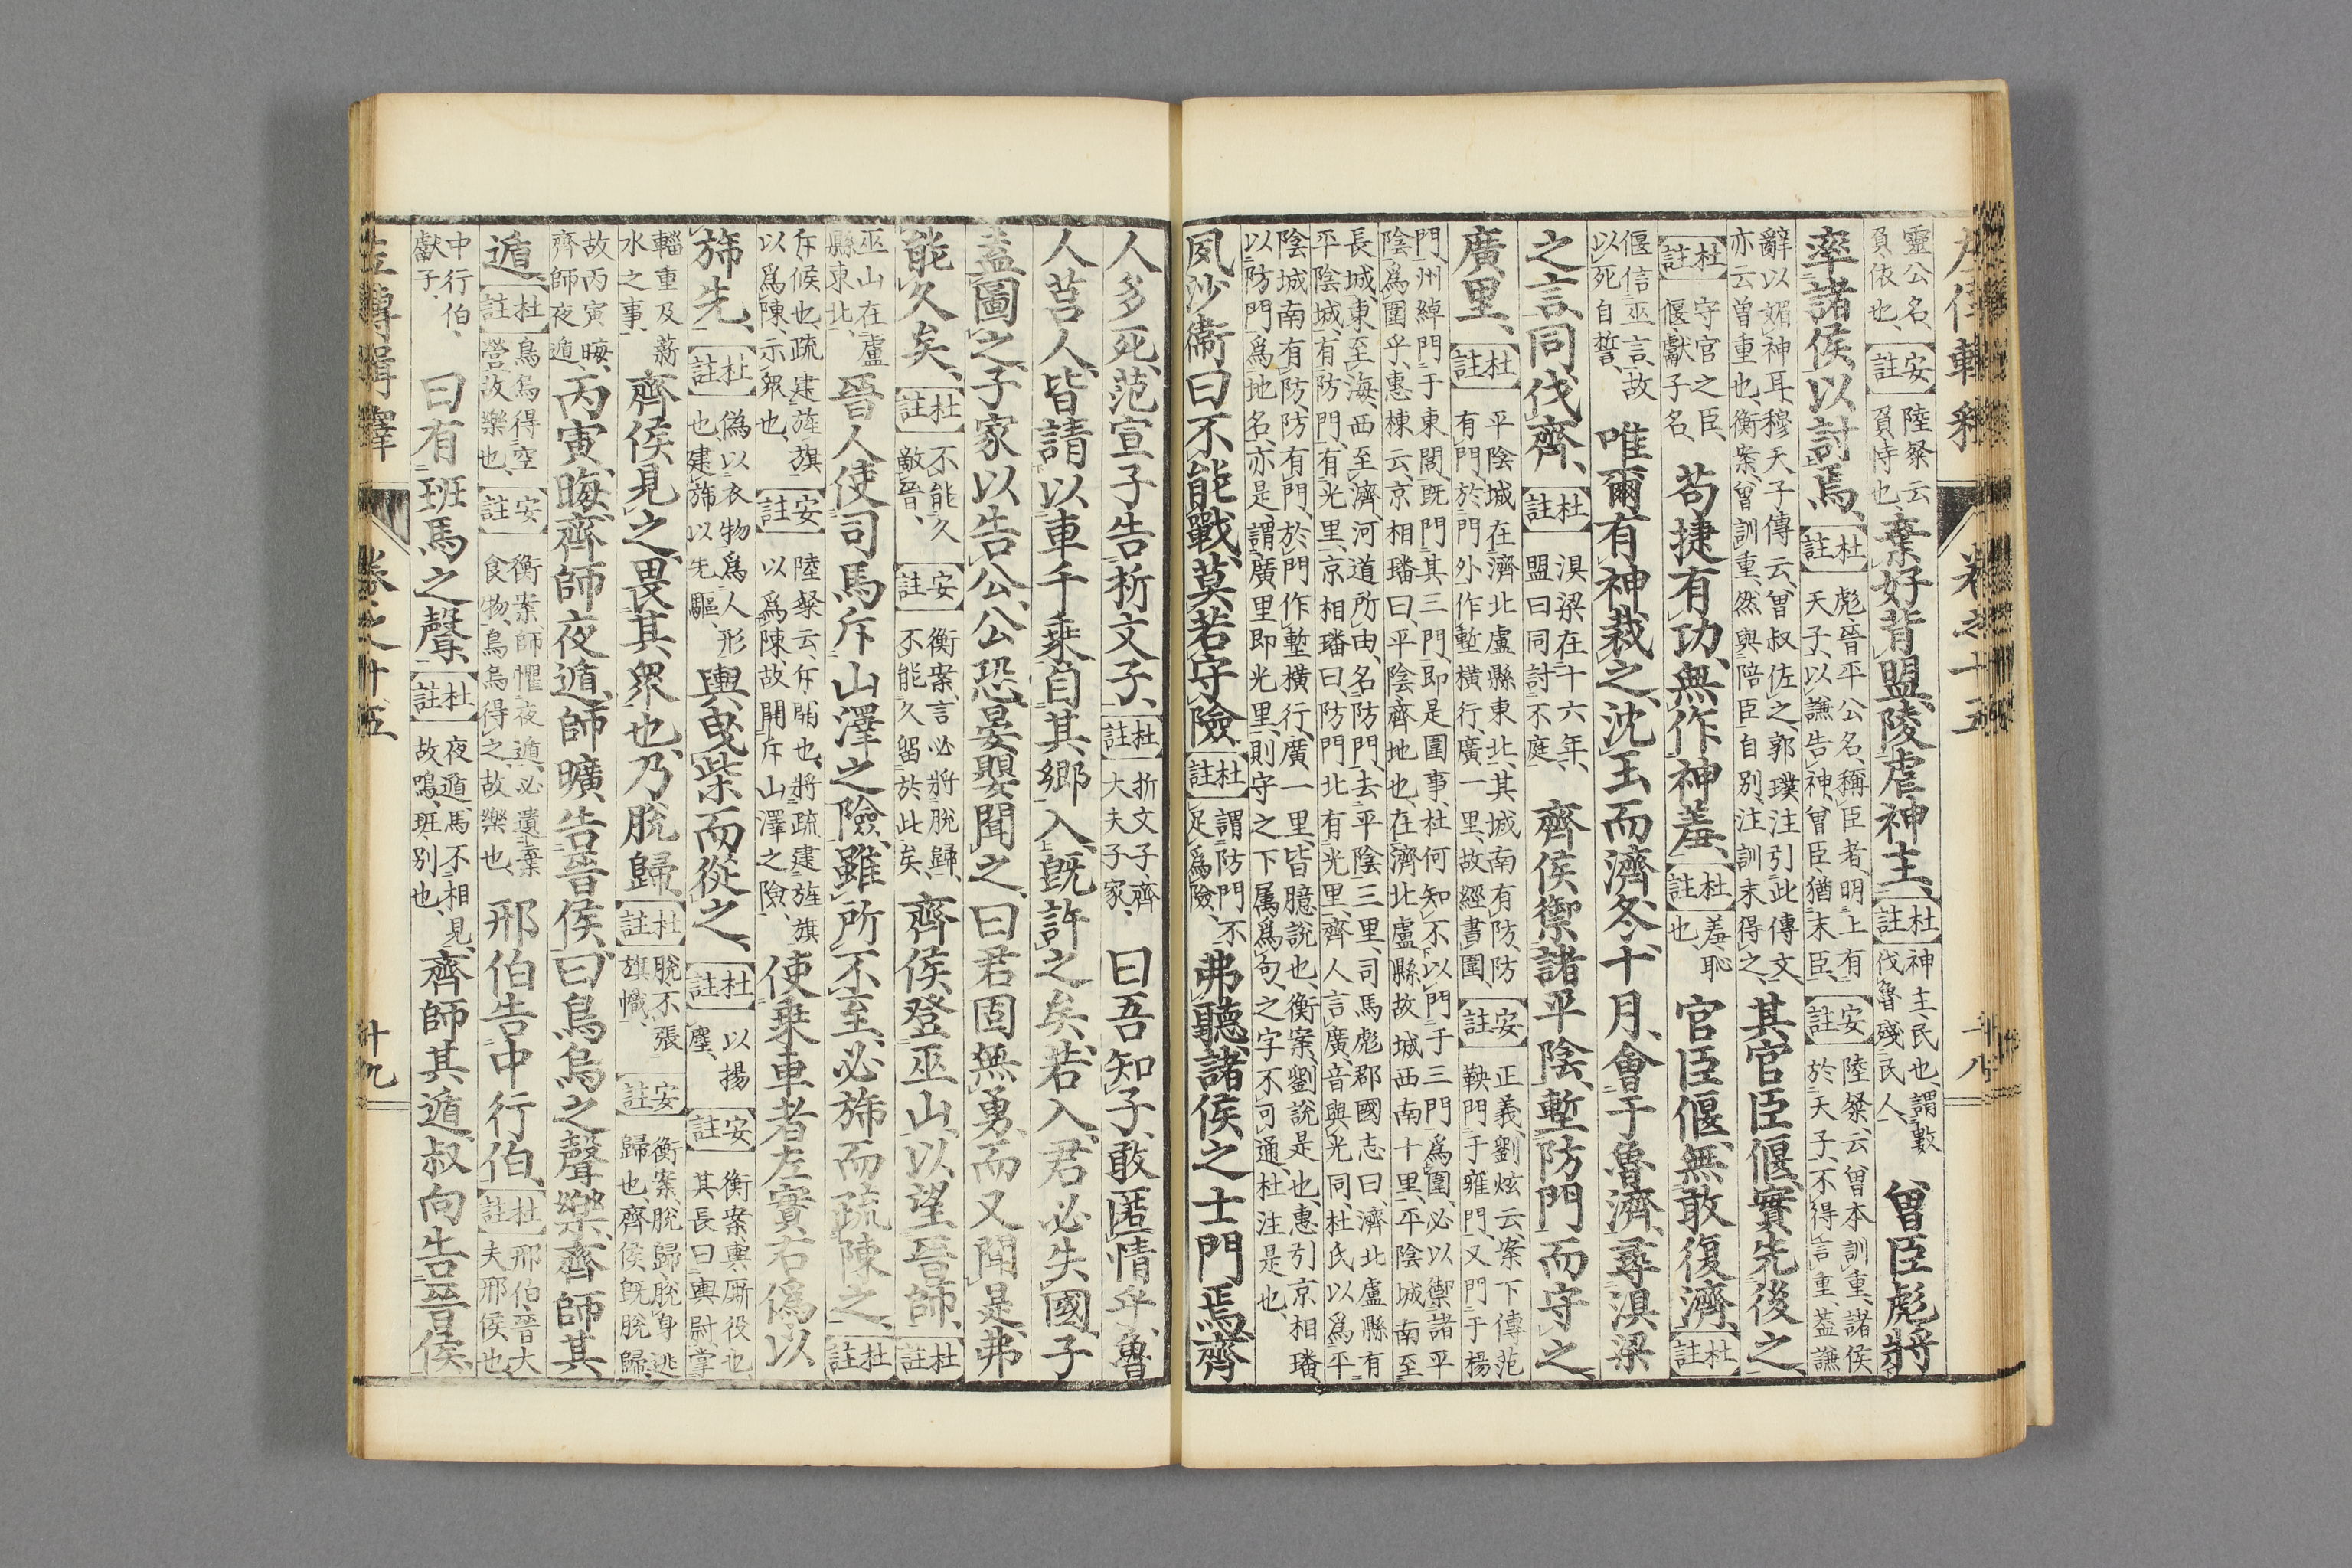 左傳輯釋 卷之十五 二十八
靈公名、負依也、安註陸粲云負恃也、棄好背盟、陵虐神主、杜註神主、民也、謂數伐魯殘民人、曾臣彪將
率諸侯以討焉、杜註彪、晉平公名、稱臣者、明上有天子、以謙告神、曾臣猶末臣、安註陸粲云曾本訓重、諸侯於天子、不得言重、蓋謙
辭以媚神耳、穆天子傳云、曾叔佐之、郭璞注引此傳文亦云曾重也、衡案、曾訓重、然與陪臣自別、注訓末得之、其官臣偃、實先後之、
杜註守官之臣、偃獻子名、苟捷有功、無作神羞、杜註羞恥也官臣偃、無敢復濟、杜註
偃信巫言、故以死自誓、唯爾有神裁之、沈玉而濟、冬十月、會于魯濟、尋湨梁
之言、同伐齊、杜註湨梁在十六年、盟曰同討不庭、齊侯禦諸平陰、塹防門而守之、
廣里、杜註平陰城在濟北盧縣東北、其城南有防、防有門、於門外作塹橫行、廣一里、故經書圍、安註正義、劉炫云、案下傳范鞅門于雍門、又門于楊
門、州綽門于東閭、既門其三門、即是圍事、杜何知不以門于三門爲圍、必以禦諸平陰爲圍乎、惠棟云、京相璠曰、平陰齊地也、在濟北盧縣故城西南十里、平陰城南至
長城、東至海、西至濟、河道所由、名防門、去平陰三里、司馬彪郡國志曰、濟北盧縣有平陰城、有防門、有光里、京相璠曰、防門北有光里、齊人言廣、音與光同、杜氏以爲平
陰城南有防、防有門、於門作塹橫行、廣一里、皆臆說也、衡案、劉說是也、惠引京相璠以防門爲地名、亦是、謂廣里即光里、則守之下属爲句、之字不可通、杜注是也、
夙沙衞曰、不能戰、莫若守險、杜註謂防門不足爲險、弗聽、諸侯之士門焉、齊
人多死、范宣子告析文子、杜註析文子、齊大夫子家、曰吾知子、敢匿情乎、魯
人莒人、皆請以車千乘、自其鄉入、既許之矣、若入、君必失國、子
盍圖之、子家以告公、公恐、晏嬰聞之、曰君固無勇、而又聞是、弗
能久矣、杜註不能久敵晉、安註衡案、言必將脫歸、不能久留於此矣、齊侯登巫山、以望晉師、杜註
巫山在盧縣東北、晉人使司馬斥山澤之險、雖所不至、必旆而疏陳之、杜註
斥候也、疏建旌旗以爲陳、示衆也、安註陸粲云、斥、開也、將疏建旌旗以爲陳、故開斥山澤之險、使乘車者左實右僞、以
旆先、杜註僞以衣物爲人形也、建旆以先驅、輿曳柴而從之、杜註以揚塵、安註衡案、輿、厮役也、其長曰輿尉、掌
輜重及薪水之事、齊侯見之、畏其衆也、乃脫歸、杜註脫不張旗幟、安註衡案、脫歸、脫身逃歸也、齊侯既脫歸、
故丙寅晦、齊師夜遁、丙寅、晦、齊師夜遁、師曠告晉侯、曰鳥烏之聲樂、齊師其
遁、杜註鳥烏得空營、故樂也、安註衡案、師懼夜遁、必遺棄食物、鳥烏得之、故樂也、邢伯告中行伯、杜註邢伯、晉大夫邢侯也、
中行伯、獻子、曰有班馬之聲、杜註夜遁、馬不相見、故鳴、班、別也、齊師其遁、叔向告晉侯、
左傳輯釋 卷之十五 十九